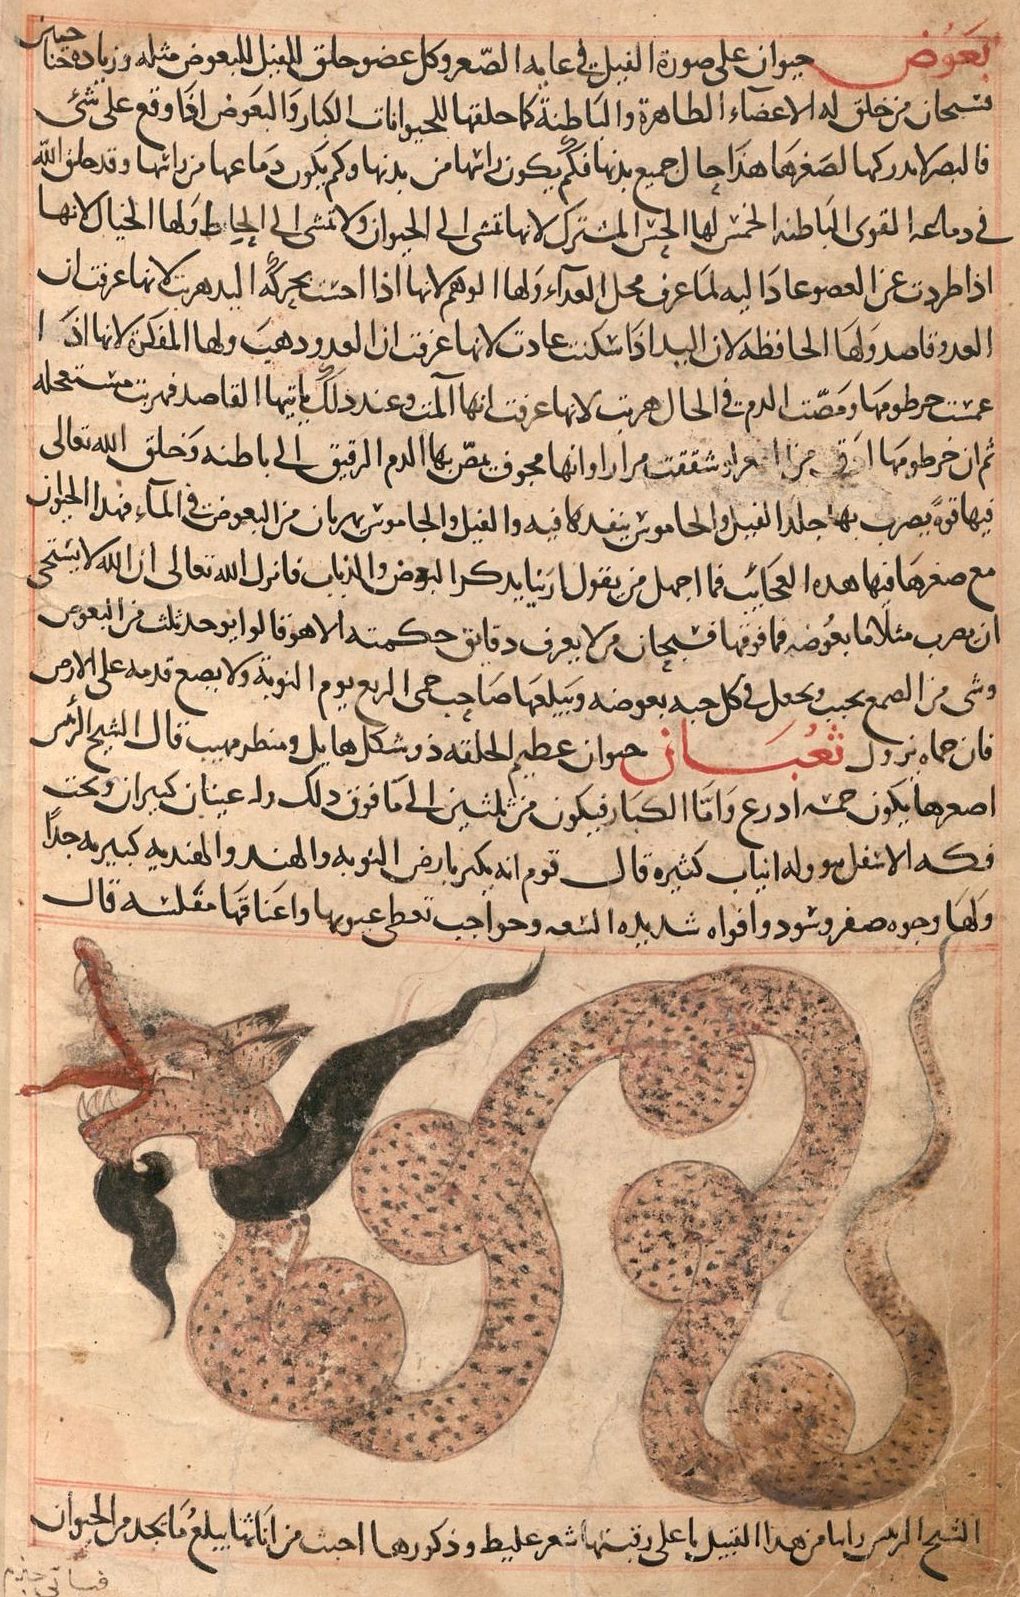 بَعُوض حيوان على صورة الفيل في غاية الصغر وكل عضو خلق للفيل للبعوض مثله وزيادة جناحين
فسبحان من خلق له الاعضاء الظاهرة والباطنة كما خلقها للحيوانات الكبار والبعوض اذا وقع على شئ
فالبصر لا يدركها لصغرها هذا حال جميع بدنها فكم يكون راسها من بدنها وكم يكون دماغها من راسها وقد خلق الله
في دماغه القوى الباطنة الخمس لها الحس المشترك لانها تمشى الى الحيوان ولا تمشى الى الحايط ولها الخيال لانها
اذا طردت عن العضو عادا اليه لما عرف محل الغذاء ولها الوهم لانها اذا احست بحركة اليد هربت لانها عرفت ان
العدو قاصد ولها الحافظة لان اليد اذا سكنت عادت لانها عرفت ان العدو ذهب ولها المفكرة لانها اذا
غمست خرطومها ومصت الدم في الحال هربت لانها عرفت انها آلمت وعند ذلك ياتيها القاصد فهربت مستعجلة
ثم ان خرطومها ادق من الشعر شققت مرارا وانها مجوف يمص بها الدم الرقيق الى باطنه وخلق الله تعالى
فيها قوة يضرب بها جلد الفيل والجاموس ينفد كما فيه والفيل والجاموس يهربان من البعوض في الماء فهذا الحيوان
مع صغرها فيها هذه العجائب فما اجهل من يقول ربنا يذكر البعوض والذباب فانزل الله تعالى ان الله لا يستحى
ان يضرب مثلا ما بعوضة فما فوقها فسبحان من لا يعرف دقايق حكمته الا هو قالوا يوخذ ثلث من البعوض
وشى من الصمغ يحبب ويجعل في كل حبة بعوضة ويبلعها صاحب حمى الربع يوم النوبة ولا يضع قدمه على الارض
فان حماه يزول ثعبان حيوان عظيم الخلقة ذو شكل هايل ومنظر مهيب قال الشيخ الرئيس
اصغرها يكون خمسة اذرع واما الكبار فيكون من ثلثين الى ما فوق ذلك وله عينان كبيران وتحت
فكه الاسفل نتوو وله انياب كثيرة قال قوم انه يكثر بارض النوبة والهند والهندية كبيرة جدا
ولها وجوه صفر وسود وافواه شديدة السعة وحواجب تغطى عيونها واعناقها مفلسة قال
الشيخ الرئيس راينا من هذا القبيل ما على رقبتها شعر غليظ وذكورها اخبث من اناثها يبلع ما يجد من الحيوان